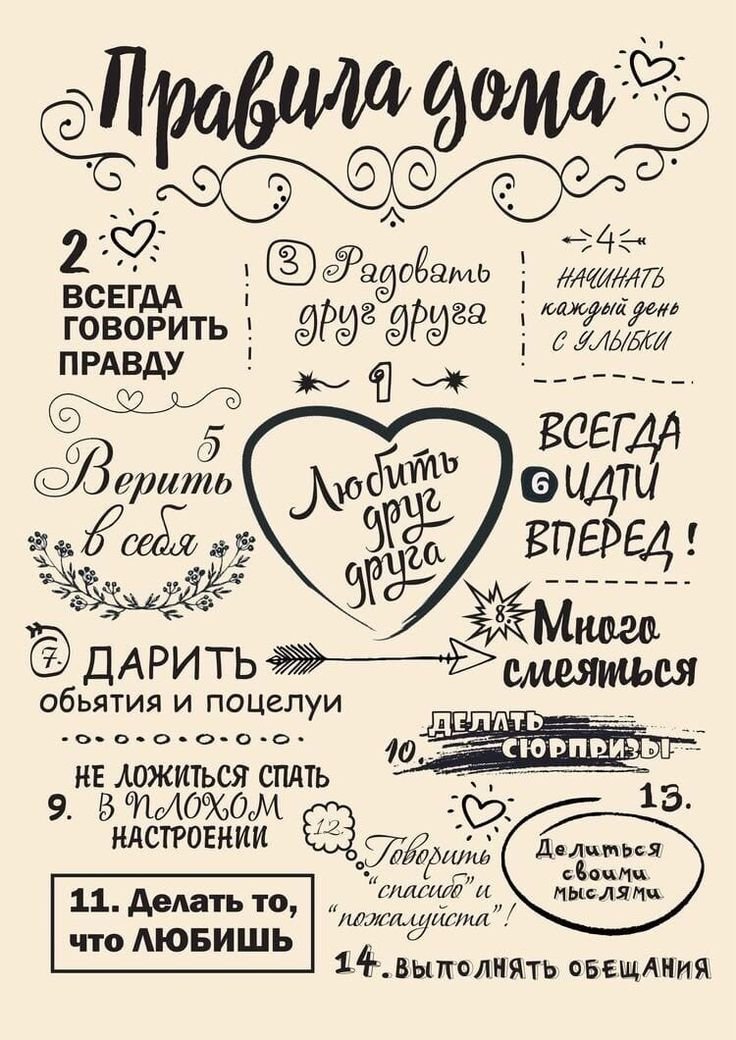 Правила дома
2
ВСЕГДА
ГОВОРИТЬ
ПРАВДУ
3 Радовать
друг друга
4
НАЧИНАТЬ
каждый день
С УЛЫБКИ
1
Любить
друг
друга
5
Верить
в себя
ВСЕГДА
6 ИДТИ
ВПЕРЕД!
7. ДАРИТЬ
обьятия и поцелуи
8. Много
смеяться
НЕ ЛОЖИТЬСЯ СПАТЬ
9. В ПЛОХОМ
НАСТРОЕНИИ
10. ДЕЛАТЬ
СЮРПРИЗЫ
11. Делать то,
что ЛЮБИШЬ
12.
Говорить
"спасибо" и
"пожалуйста"!
13.
Делиться
своими
мыслями
14. ВЫПОЛНЯТЬ ОБЕЩАНИЯ